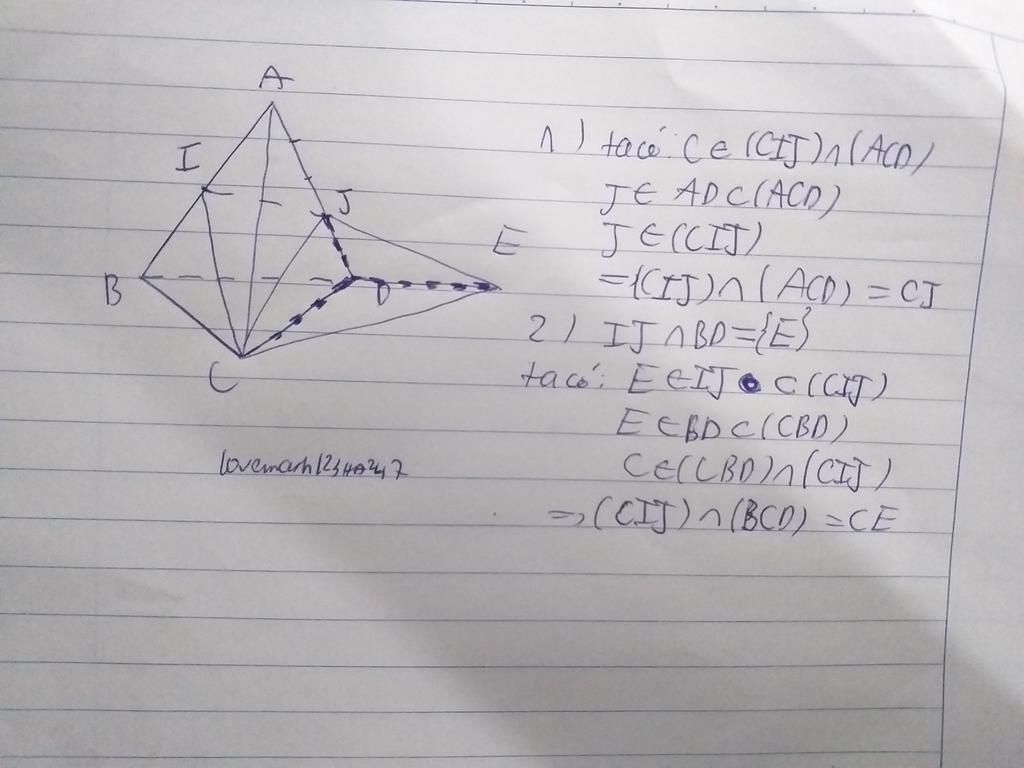 A
I
J
E
B
D
C
1) ta có: C ∈ (CIJ) ∩ (ACD)
J ∈ AD ⊂ (ACD)
J ∈ (CIJ)
=> (CIJ) ∩ (ACD) = CJ
2) IJ ∩ BD = {E}
ta có: E ∈ IJ ⊂ (CIJ)
E ∈ BD ⊂ (CBD)
C ∈ (CBD) ∩ (CIJ)
=> (CIJ) ∩ (BCD) = CE